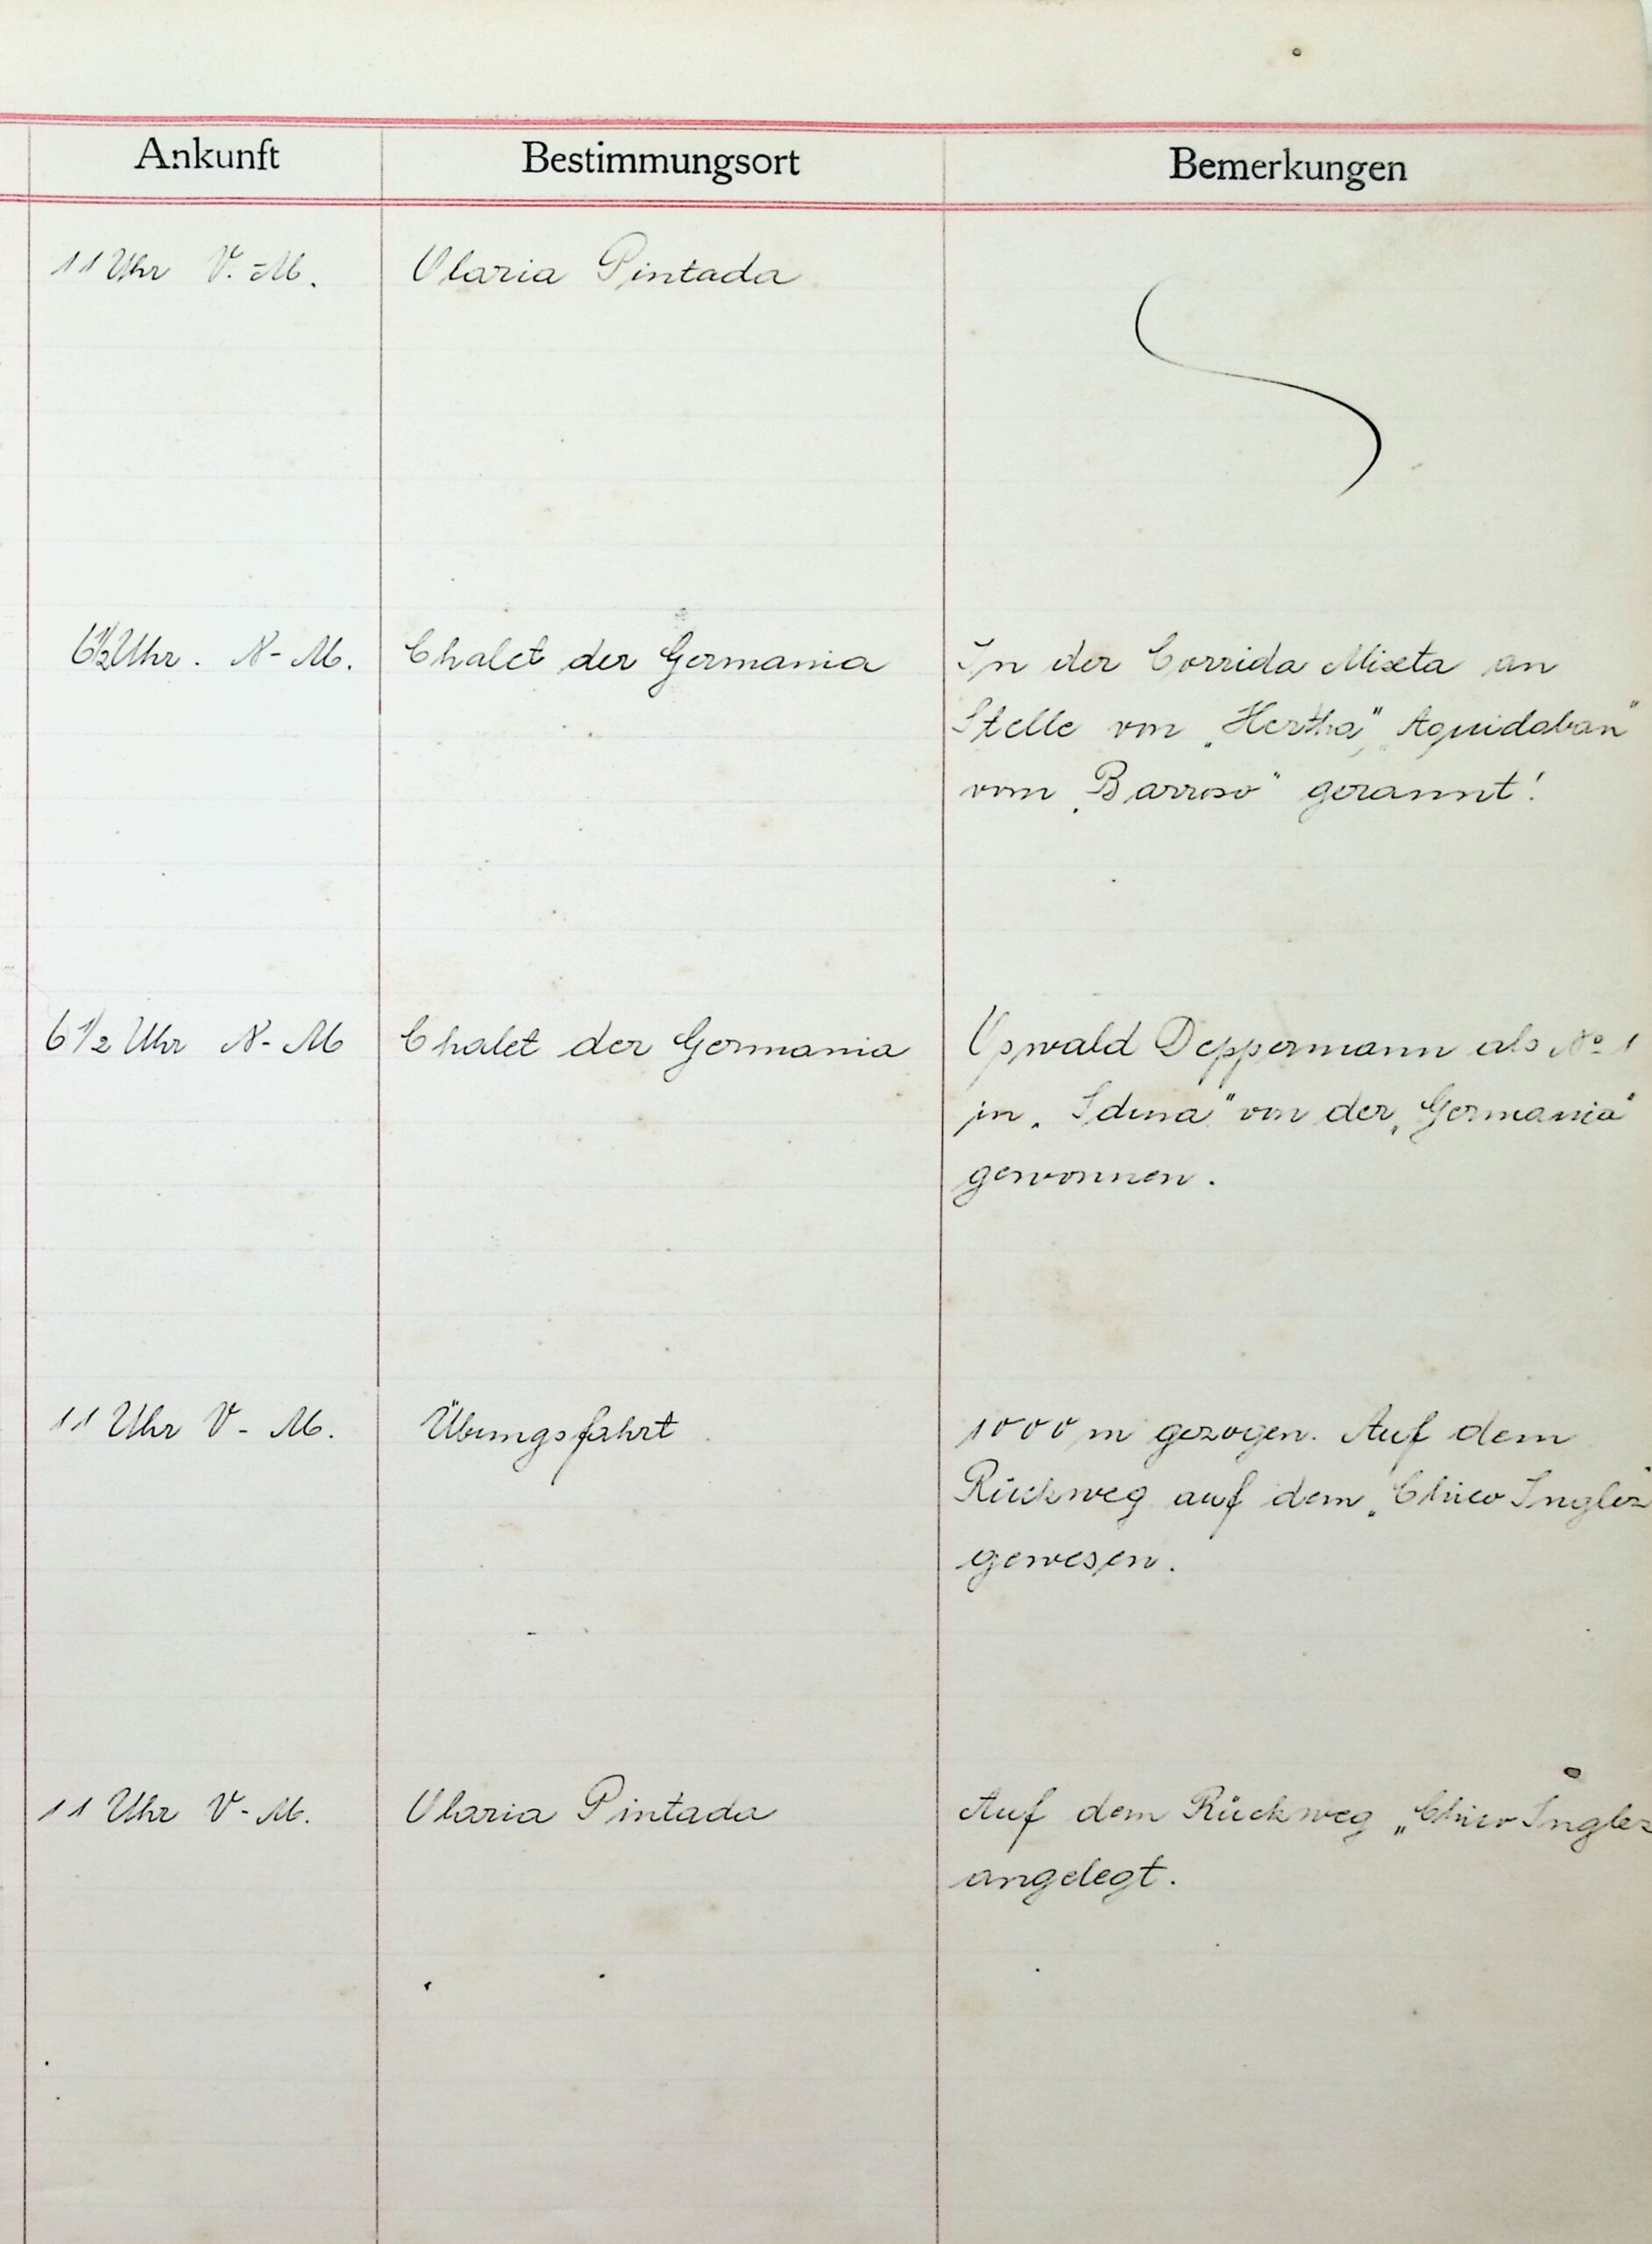 Ankunft Bestimmungsort Bemerkungen
11 Uhr V.-M. Olaria Pintada
6½ Uhr. N-M. Chalet der Germania In der Corrida Mixta an
Stelle von „Hertha“, „Aquidaban“
vom „Barroso“ gerannt!
6 1/2 Uhr N-M Chalet der Germania Oswald Deppermann als No 1
in „Iduna“ von der „Germania“
gewonnen.
11 Uhr V-M. Übungsfahrt 1000 m gezogen. Auf dem
Rückweg auf dem „Chico Inglez“
gewesen.
11 Uhr V-M. Olaria Pintada Auf dem Rückweg „Chico Inglez
angelegt.